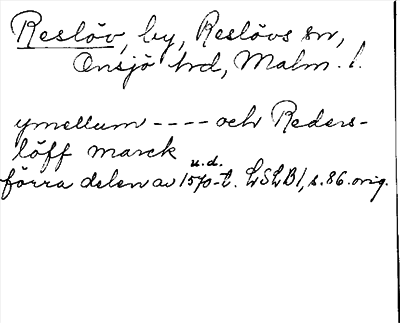 Reslöv, by, Reslövs sn,
Onsjö hd, Malm. l.
ymellum ---- och Reders-
löff marck
u.d.
förra delen av 1570-t. LSLB1, s. 86. orig.